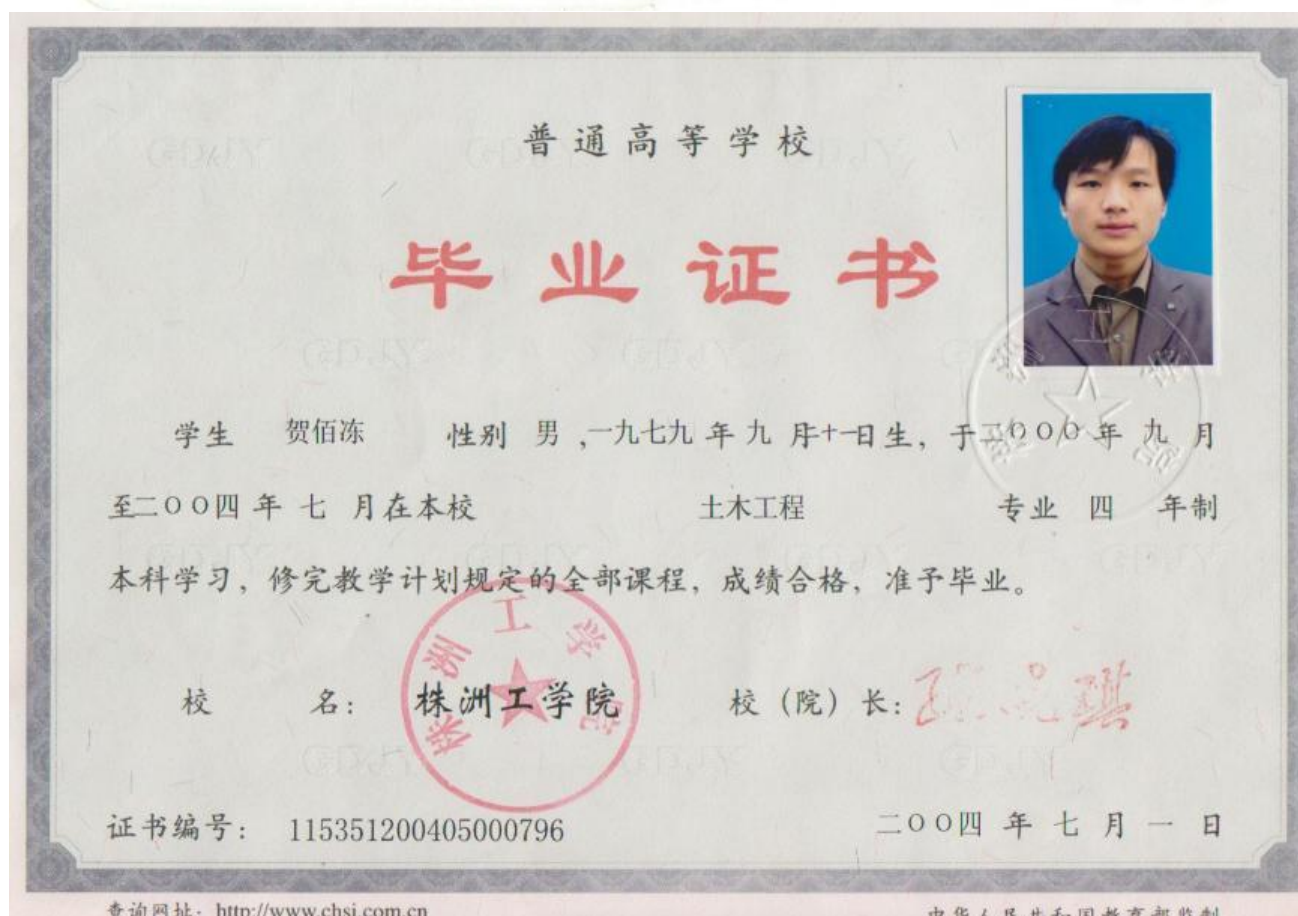 普通高等学校
毕业证书
学生 贺佰冻 性别 男 ,一九七九 年 九 月十一日生, 于二〇〇〇年 九 月
至二〇〇四 年 七 月在本校 土木工程 专业 四 年制
本科学习, 修完教学计划规定的全部课程, 成绩合格, 准予毕业。
校 名: 株洲工学院 校 (院) 长:
株洲工学院
株洲工学院
证书编号: 115351200405000796 二〇〇四 年 七 月 一 日
查询网址: http://www.chsi.com.cn 中华人民共和国教育部监制